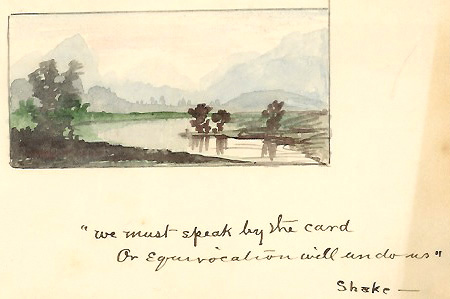 "we must speak by the card
Or Equivocation will undo us"
Shake —